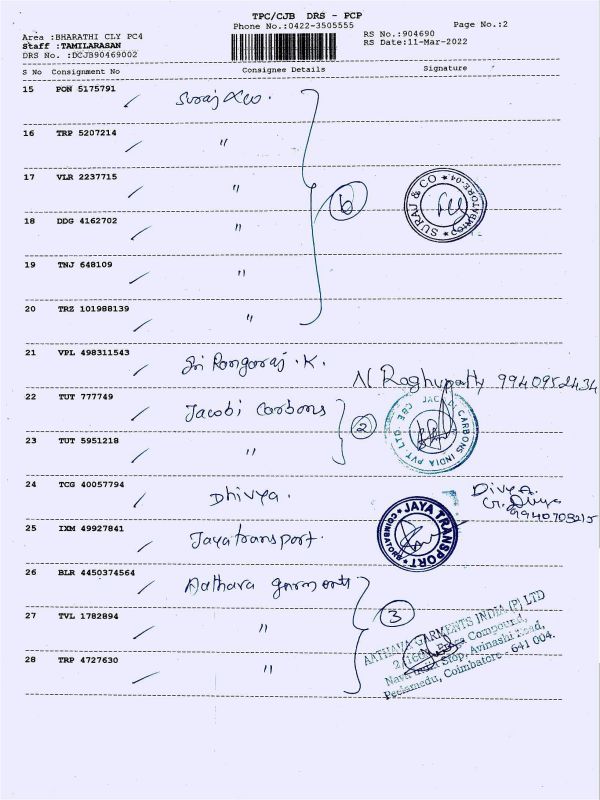 TPC/CJB DRS - PCP
Phone No.:0422-3505555
Page No.:2
Area :BHARATHI CLY PC4
RS No.:904690
Staff :TAMILARASAN
RS Date:11-Mar-2022
DRS No. :DCJB90469002
S No Consignment No Consignee Details Signature
15 PON 5175791 Suraj & co.
16 TRP 5207214 "
17 VLR 2237715 "
6
SURAJ & CO ★ COIMBATORE-04 ★
18 DDG 4162702 "
19 TNJ 648109 "
20 TRZ 101988139 "
21 VPL 498311543 Sri Rangaraj .K.
N Raghupathy 9940952434
22 TUT 777749 Jacobi Carbons
2
JACOBI CARBONS INDIA PVT. LTD. CBE
23 TUT 5951218 "
24 TCG 40057794 Dhivya.
Divya.
G. Divya
9940708215
25 IXM 49927841 Jayatransport.
JAYA TRANSPORT ★ COIMBATORE ★
26 BLR 4450374564 Aathava garments
3
27 TVL 1782894 "
28 TRP 4727630 "
AATHAVA GARMENTS INDIA (P) LTD
Compound,
Nava India Stop, Avinashi Road,
Peelamedu, Coimbatore - 641 004.